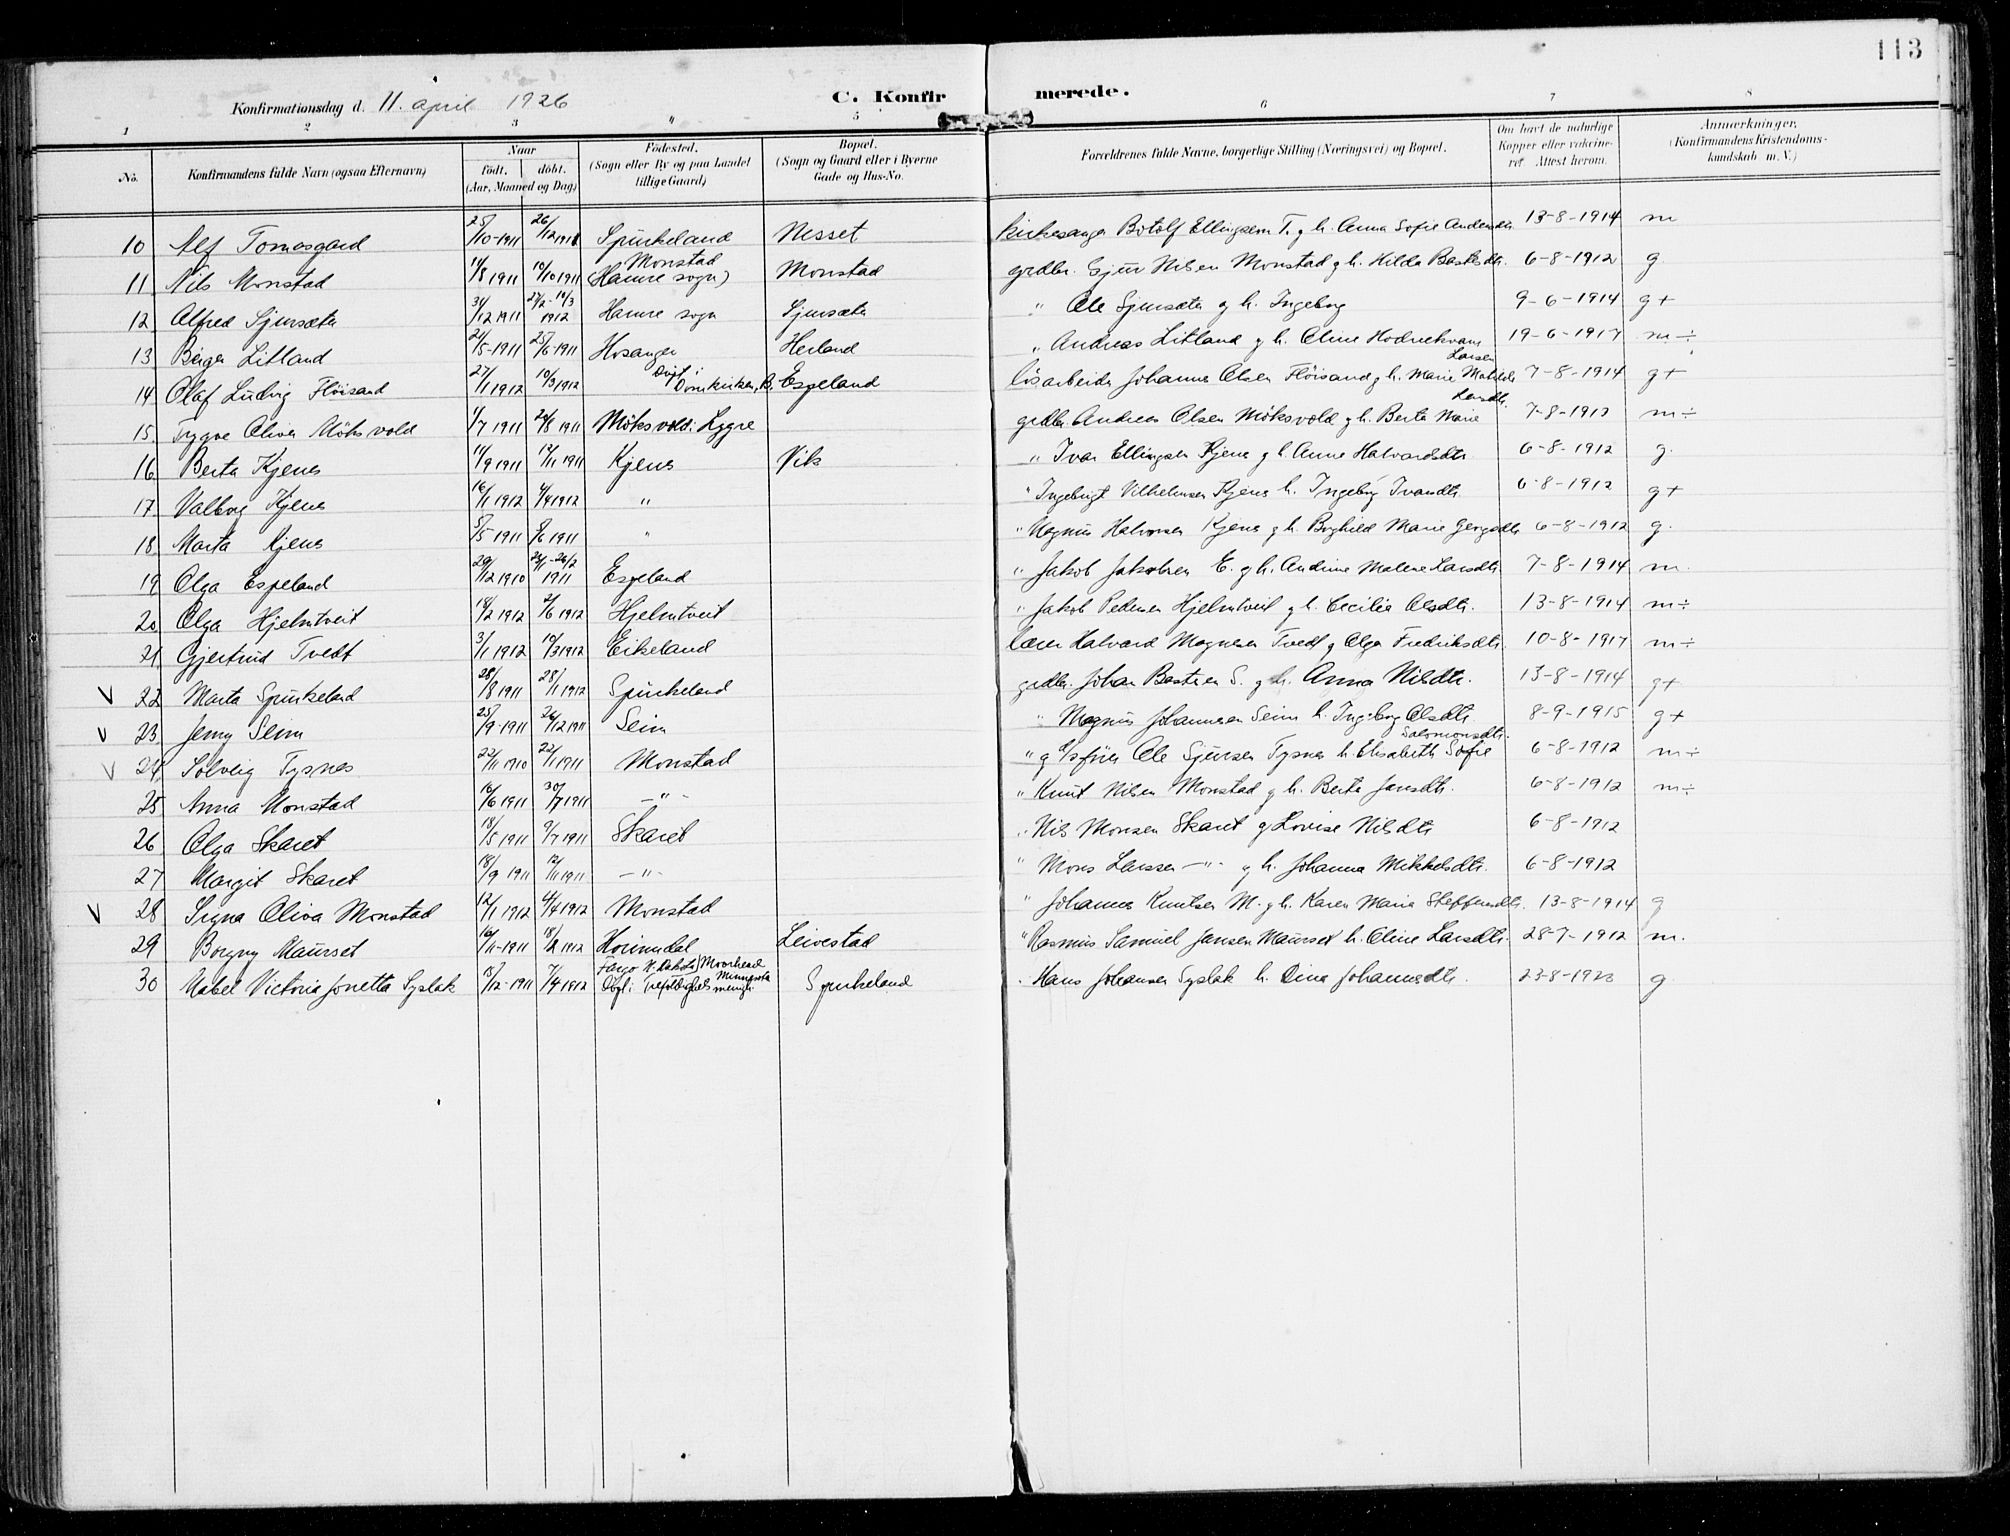 113
Konfirmationsdag d. 11. april 1926 C. Konfirmerede.
1 2 3 " 5 6 7 8
No. Konfirmandens fulde Navn (ogsaa Efternavn) Naar født. døbt. (Aar, Maaned og Dag) Fødested. (Sogn eller By og paa Landet tillige Gaard) Bopæl. (Sogn og Gaard eller i Byerne Gade og Hus-No. Forældrenes fulde Navne, borgerlige Stilling (Næringsvei) og Bopæl. Om havt de naturlige Kopper eller vakcineret. Attest herom. Anmærkninger. (Konfirmandens Kristendomskundskab m. V.)
10 Alf Tomasgard 25/10-1911 26/12 1911 Spurkeland Nesset Kirkesanger Botolf Ellingsen T. g h. Anna Sofie Andersdtr 13-8-1914 m
11 Nils Monstad 11/8 1911 10/10 1911 Monstad (Hamre sogn) Monstad grdbr. Sjur Nilsen Monstad g h. Hilda Bastesdtr. 6-8-1912 g
12 Alfred Sjursæter 31/12 1911 27/2-10/3 1912 Hamre sogn Sjursæter " Ole Sjursæter g h. Ingeborg 9-6-1914 g+
13 Birger Litland 24/5-1911 25/6-1911 Hosanger Herland " Andreas Litland g h. Oline Hodnekvam 19-6-1917 m÷
14 Olaf Ludvig Fløisand 27/1 1912 10/3 1912 Døpt i Domkirken, B. Espeland løsarbeider Johannes Olsen Fløisand g h. Marie Matilde Larsen 7-8-1914 g+
15. Trygve Oliver Møksvold 1/7 1911 20/8 1911 Møksvold i Lygre grdbr. Andreas Olsen Møksvold g h. Berta Marie Larsdtr. 7-8-1912 m÷
16 Berta Kjenes 11/9 1911 12/11 1911 Kjenes Vik " Ivar Ellingsen Kjenes g h. Anne Halvardsdtr 6-8-1912 g.
17 Valborg Kjenes 16/1 1912 4/4 1912 " " Ingebrigt Vilhelmsen Kjenes h. Ingeborg Ivarsdtr. 6-8-1912 g+
18. Marta Kjenes 5/5 1911 5/6 1911 " " Magnus Halvorsen Kjenes g h. Borghild Marie Jørgsdtr 6-8-1912 g.
19 Olga Espeland 29/12 1910 24/1-26/2 1911 Espeland " Jakob Jakobsen E. g h. Andrine Malene Larsdtr. 7-8-1914 m.
20 Olga Hjelmtveit 14/2 1912 2/6 1912 Hjelmtveit " Jakob Pedersen Hjelmtveit g h. Cecilie Olsdtr. 13-8-1914 m÷
21 Gjertrud Tvedt 3/1 1912 10/3 1912 Eikeland lærer Halvard Magnesen Tvedt g Olga Fredriksdtr. 10-8-1917 m÷
V 22 Marta Spurkeland 28/8 1911 28/1 1912 Spurkeland grdbr. Johan Bastesen S. g h. Anna Nilsdtr. 13-8-1914 g+
V 23 Jenny Seim 25/9-1911 26/12 1911 Seim " Magnus Johannesen Seim h. Ingeborg Olsdtr. 8-9-1915 g+
V 24 Solveig Tysnes 22/11 1910 22/1 1911 Monstad " g Ole Sjursen Tysnes h. Elisabeth Sofie Salomonsdtr. 6-8-1912 m÷
25 Anna Monstad 16/6 1911 30/7 1911 —"— " Knut Nilsen Monstad g h. Berta Jansdtr. 6-8-1912 m÷
26 Olga Skaret 18/5 1911 9/7 1911 Skaret " Nils Monsen Skaret g Lovise Nilsdtr 6-8-1912
27 Margit Skaret 18/9 1911 12/11 1911 —"— " Mons Larssen —"— g h. Johanna Mikkelsdtr. 6-8-1912
V 28 Signa Oliva Monstad 12/1 1912 4/4 1912 Monstad " Johannes Knutsen M. g h. Karen Marie Steffensdtr. 13-8-1914 g
29 Borgny Maurset 16/11-1911 18/2 1912 Horinndal Leivestad " Rasmus Samuel Jansen Maurset h. Oline Larsdtr. 28-7-1912 m.
30 Mabel Victoria Jonetta Syslak 13/12-1911 7/4 1912 Fargo N. Dakota / Moorhead Minnesota Døpt i: Trefoldigheds menigh. Spurkeland . Hans Johansen Syslak h. Dina Johannesdtr. 23-8-1923 g